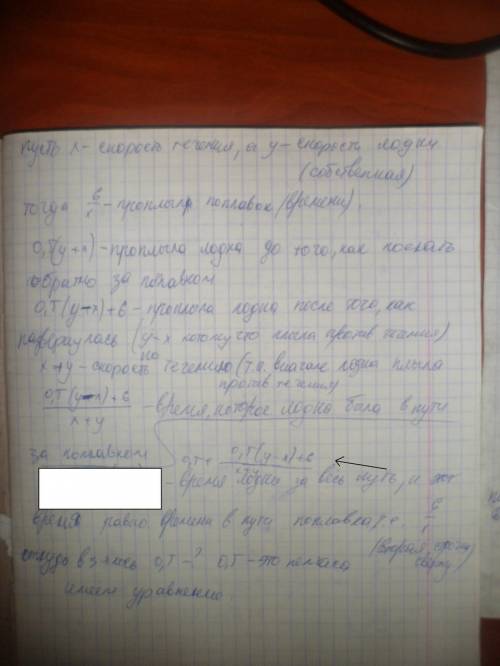 пусть x - скорость течения, а y - скорость лодки
(собственная)
тогда 6/x - проплыл поплавок (времени).
0,7(y+x) - проплыла лодка до того, как поехать
обратно за поплавком
0,7(y-x)+6 - проплыла лодка после того, как
развернулась (y-x потому что плыла против течения)
x+y - скорость по течению (т.к. вначале лодка плыла
против течения
(0,7(y-x)+6)/(x+y) - время, которое лодка была в пути
за поплавком
0,7+ (0,7(y-x)+6)/(x+y) ←
- время лодки за весь путь, и это
время равно времени в пути поплавка т.е. 6/x
(вторая строчка сверху)
откуда взялись 0,7-? 0,7 - это
имеем уравнение.